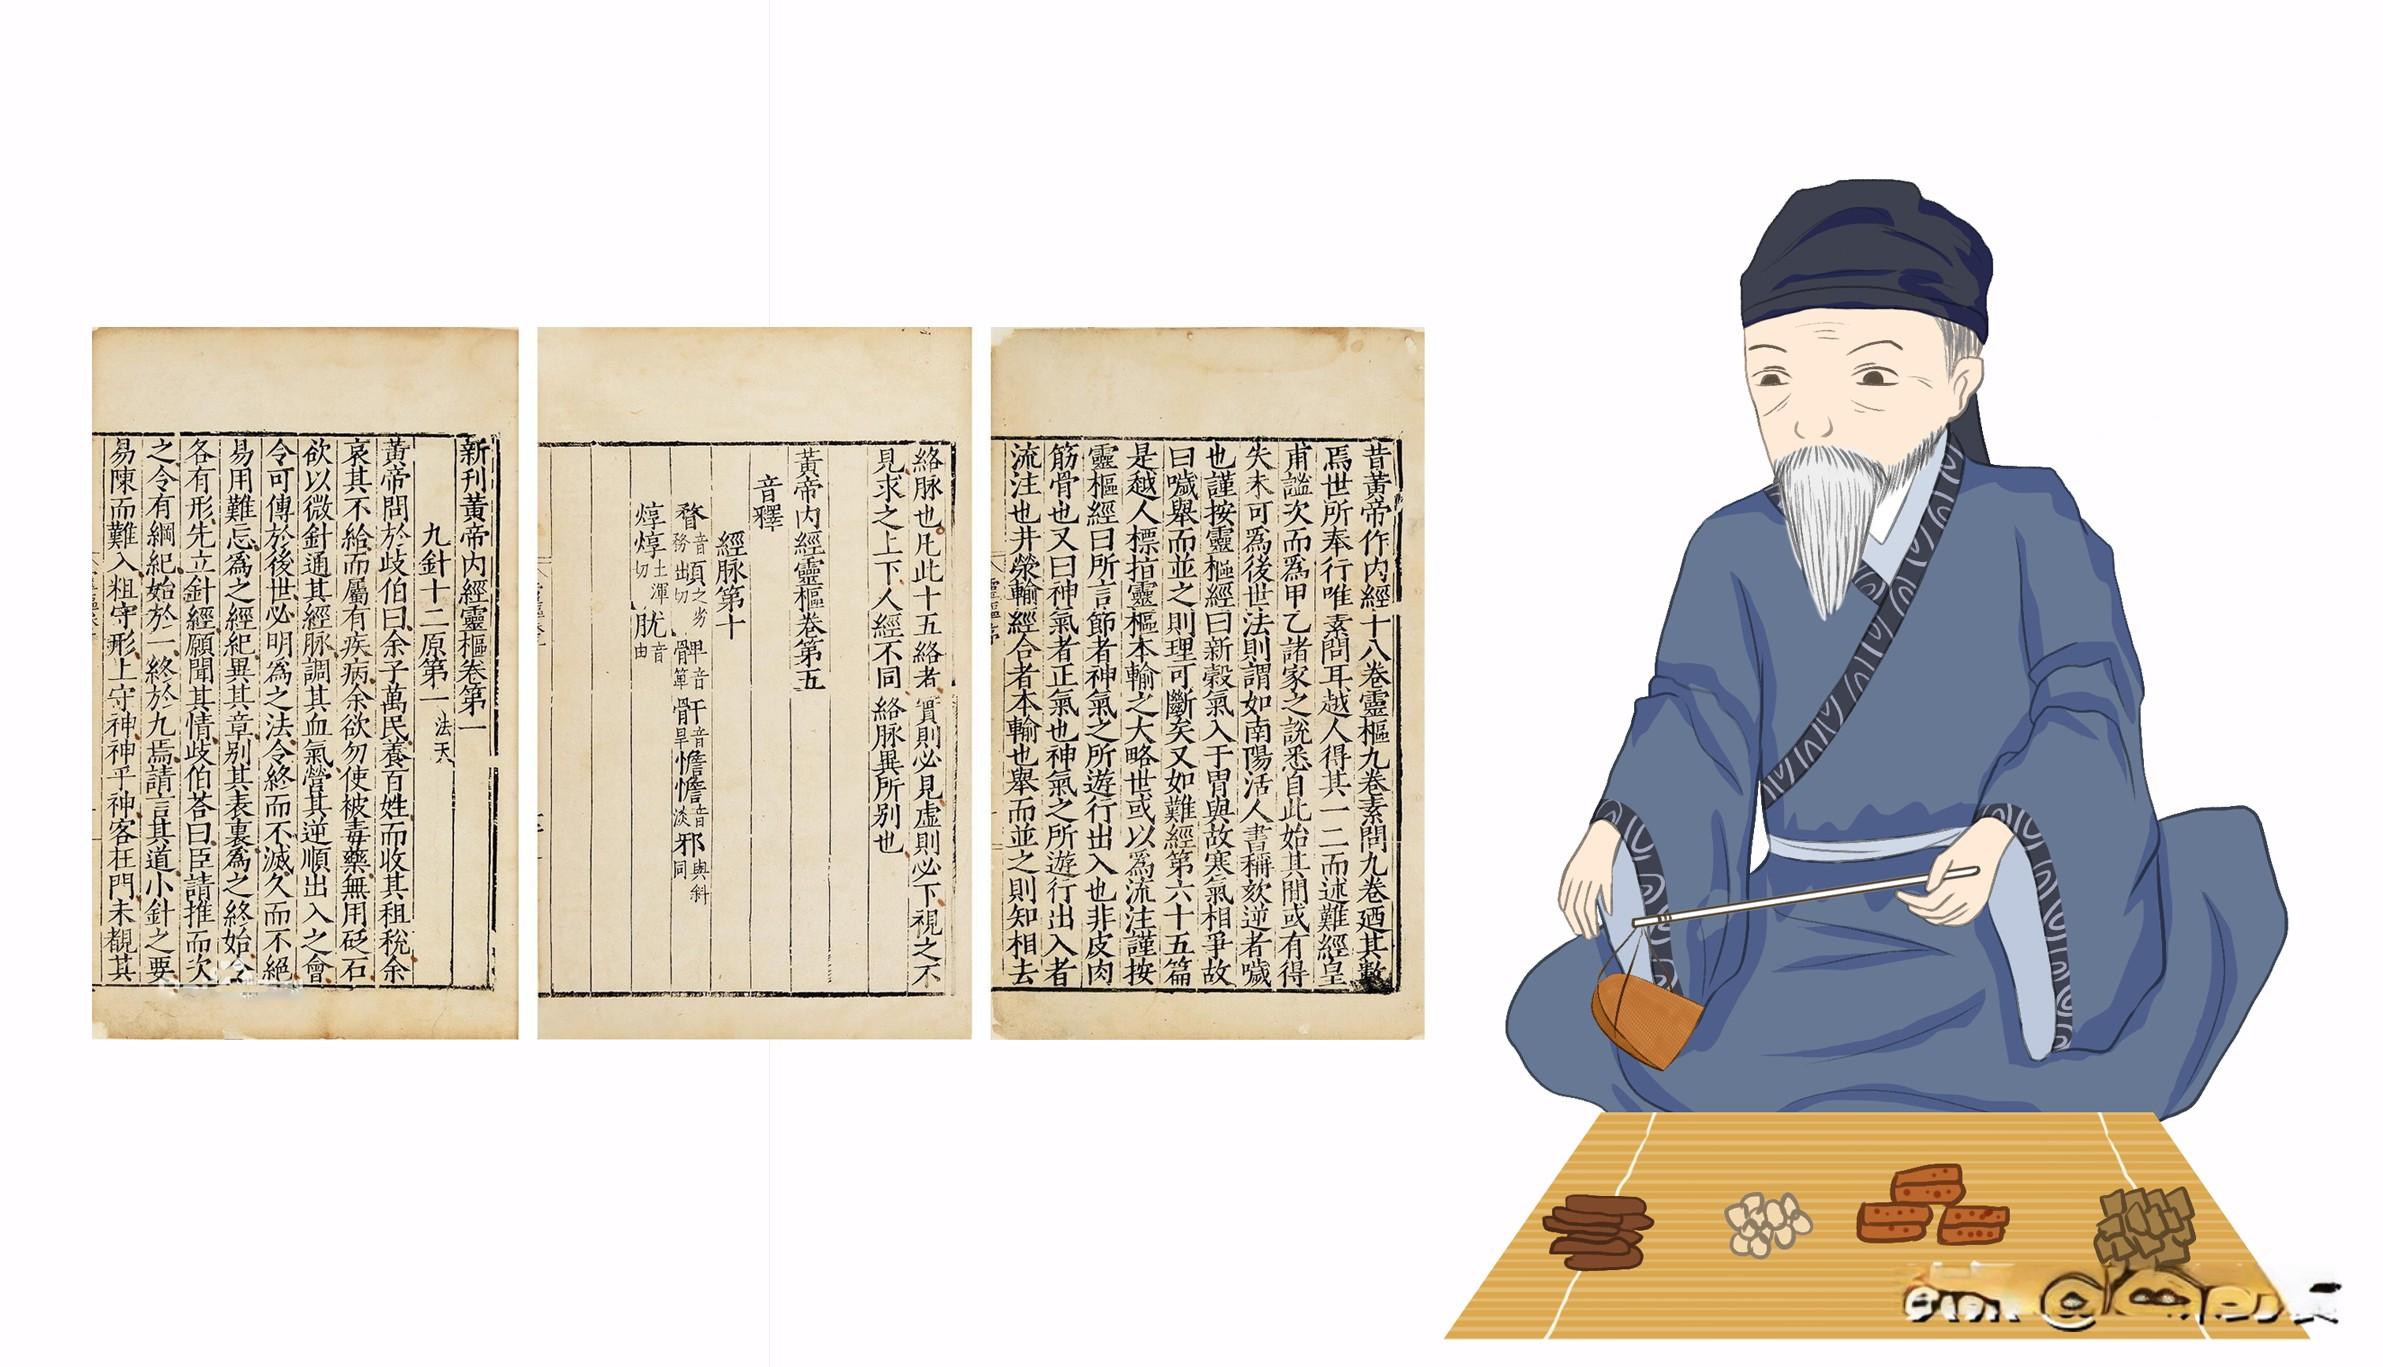 新刊黃帝内經靈樞卷第一
九針十二原第一 法天
黃帝問於歧伯曰余子萬民養百姓而收其租稅余
哀其不給而屬有疾病余欲勿使被毒藥無用砭石
欲以微針通其經脉調其血氣營其逆順出入之會
令可傳於後世必明爲之法令終而不滅久而不絕
易用難忘爲之經紀異其章别其表裏爲之終始令
各有形先立針經願聞其情歧伯荅曰臣請推而次
之令有綱紀始於一終於九焉請言其道小針之要
易陳而難入粗守形上守神神乎神客在門未覩其
絡脉也凡此十五絡者實則必見虚則必下視之不
見求之上下人經不同絡脉異所别也
黃帝内經靈樞卷第五
音釋
經脉第十
瞀音務 䪼之劣出切 髀音箄 骭音旱 憺憺音淡 邪與斜同
焞焞土渾切 肬音由
昔黃帝作内經十八卷靈樞九卷素問九卷廼其數
焉世所奉行唯素問耳越人得其一二而述難經皇
甫謐次而爲甲乙諸家之說悉自此始其間或有得
失未可爲後世法則謂如南陽活人書稱欬逆者噦
也謹按靈樞經曰新榖氣入于胃與故寒氣相爭故
曰噦舉而並之則理可斷矣又如難經第六十五篇
是越人標指靈樞本輸之大略世或以爲流注謹按
靈樞經曰所言節者神氣之所遊行出入也非皮肉
筋骨也又曰神氣者正氣也神氣之所遊行出入者
流注也井滎輸經合者本輸也舉而並之則知相去